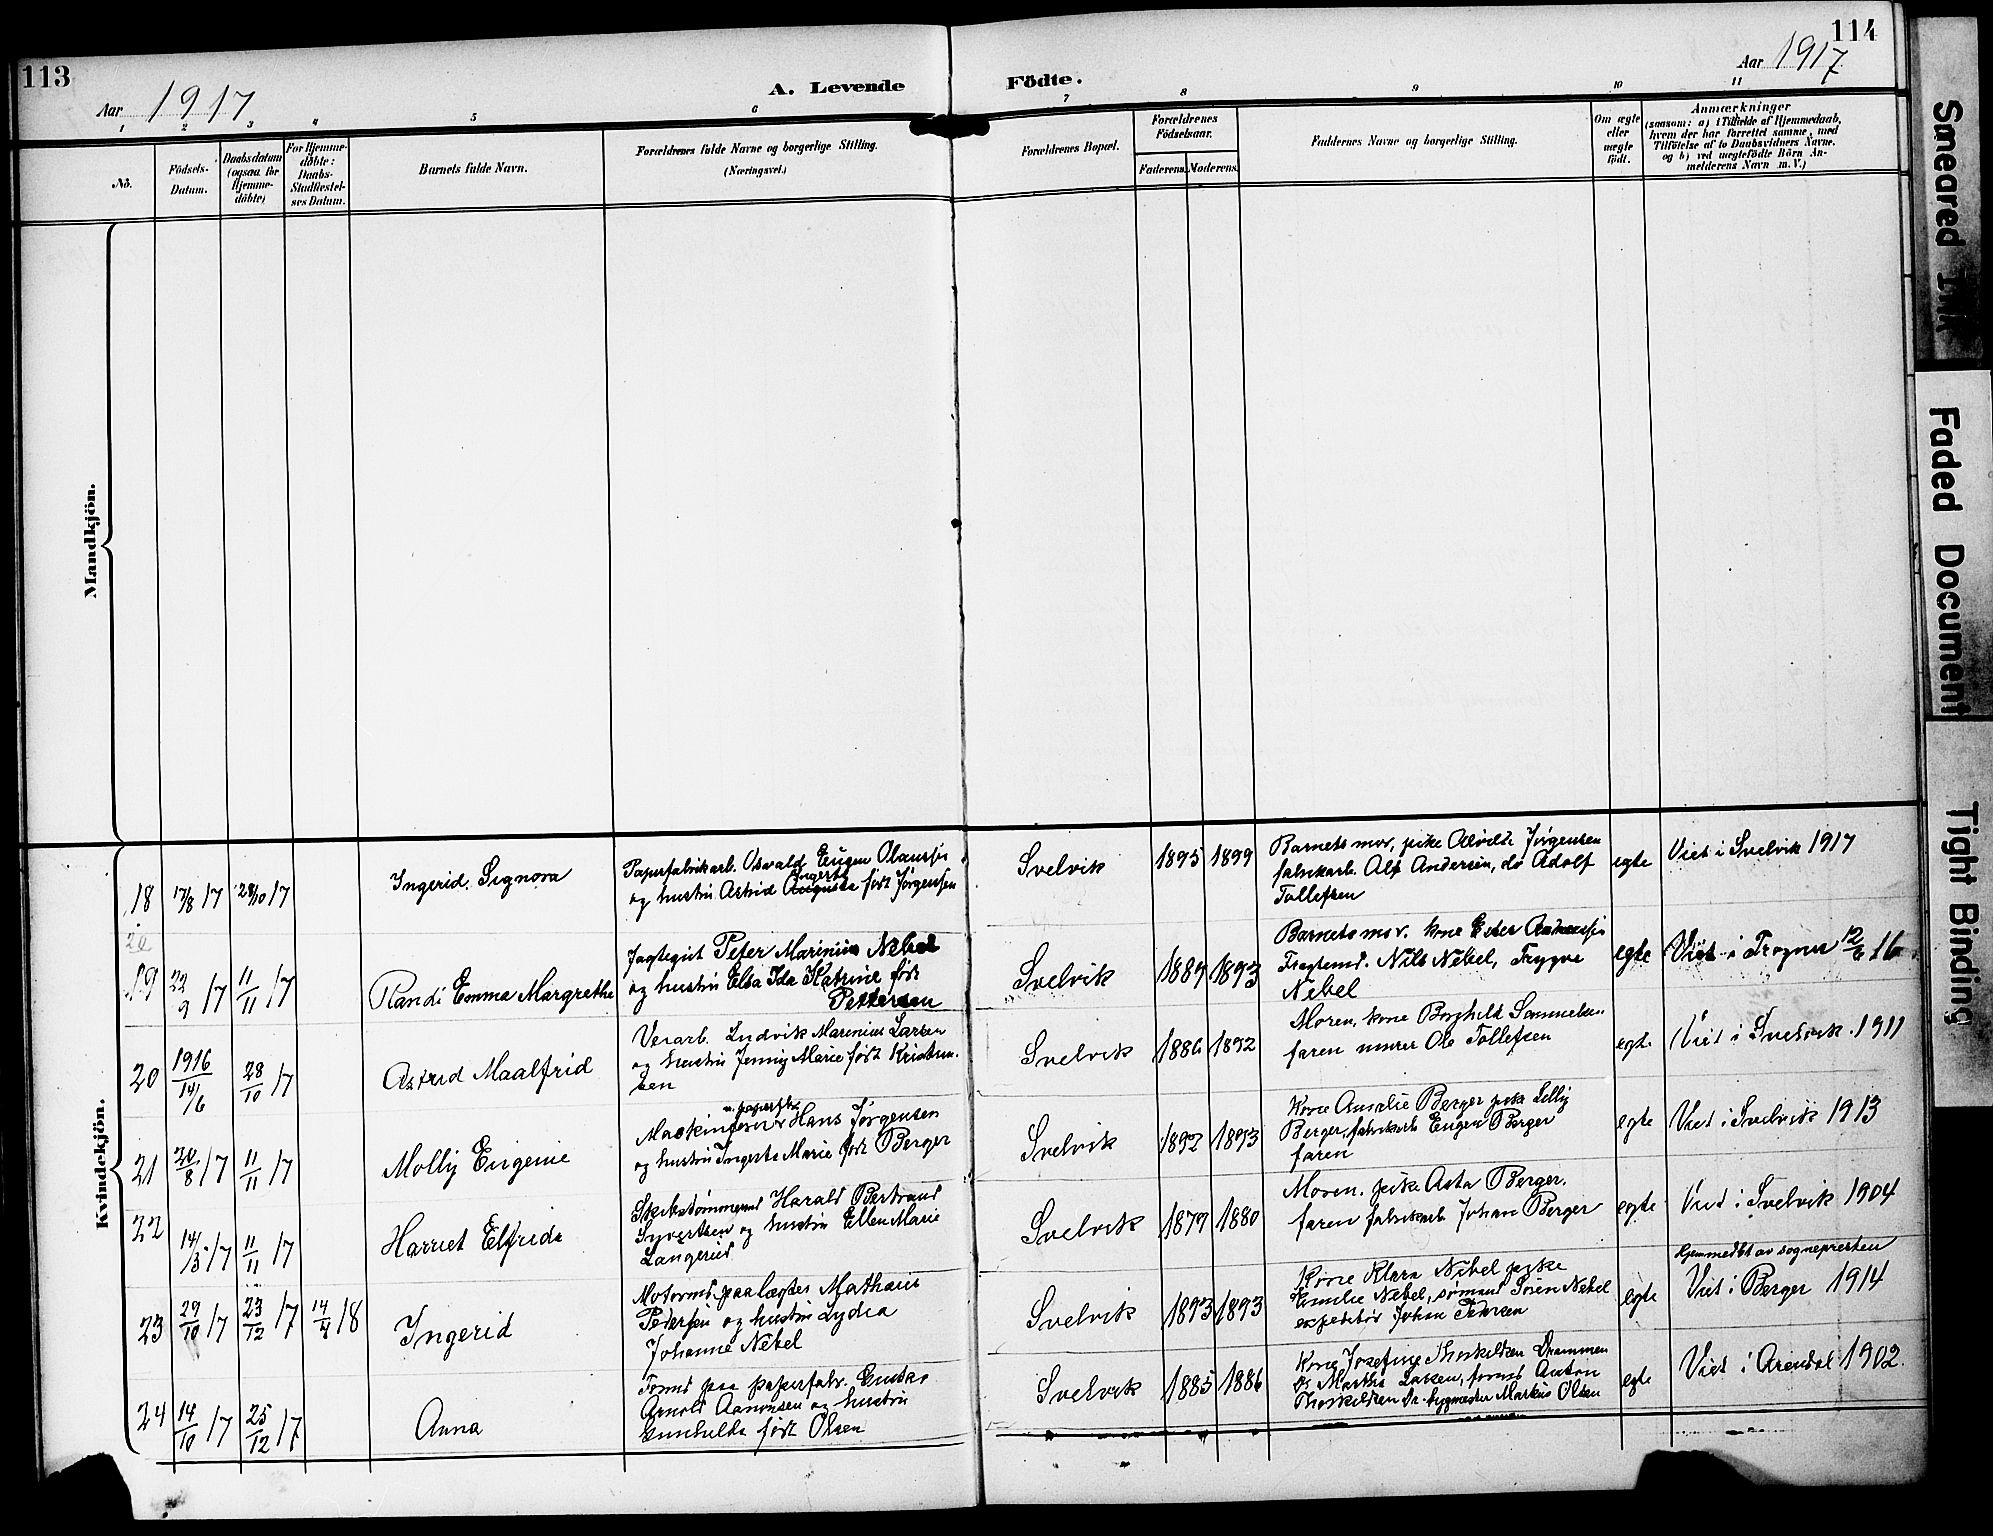 113
Aar 1917
A. Levende
Födte.
114
Aar 1917
1 2 3 4 5 6 7 8 9 10 11
No.
Födsels-
Datum.
Daabsdatum
(ogsaa for
Hjemme-
döbte)
For Hjemme-
döbte:
Daabs-
Stadfæstel-
ses Datum.
Barnets fulde Navn.
Forældrenes fulde Navne og borgerlige Stilling.
(Næringsvei.)
Forældrenes Bopæl.
Forældrenes
Födselsaar.
Faderens. Moderens.
Faddernes Navne og borgerlige Stilling.
Om ægte
eller
uægte
født.
Anmærkninger
(saasom: a) i Tilfælde af Hjemmedaab,
hvem der har forrettet samme, med
Tilföielse af to Daabsvidners Navne.
og b) ved uægtefödte Börn An-
melderens Navn m. V.)
Mandkjön.
Kvindekjön.
18 17/8 17 28/10 17
Ingerid Signora
Papirfabrikarb. Osvald Eugen Olaussen
Ingerta
og hustru Astrid Augusta født Jørgensen
Svelvik
1895 1899
Barnets mor, pike Alvilde Jørgensen
fabrikarb. Alf Andersen, do Adolf
Tollefsen
egte
Viet i Svelvik 1917
20
19 22/9 17 11/11 17
Randi Emma Margrethe
Jagtegut Peter Marinius Nebel
og hustru Elsa Ida Katrine født
Pettersen
Svelvik
1889 1893
Barnets mor. kone Ester
Fragtemd. Nils Nebel, Trygve
Nebel
egte
Viet i Trogner 12/6 16
20 1916 14/6 28/10 17
Astrid Maalfrid
Verarb. Ludvik Marenius Larsen
og hustru Jenny Marie født Kristen-
sen
Svelvik
1886 1892
Moren, kone Borghild Sammelsen
faren murer Ole Tollefsen
egte
Viet i Svelvik 1911
21 20/8 17 11/11 17
Molly Eugenie
Maskinfører Hans Jørgensen
og hustru Ingerta Marie født Berger
Svelvik
1892 1893
Kone Amalie Berger pike Lilly
Berger, fabrikarb Eugen Berger
faren
egte
Viet i Svelvik 1913
22 14/5 17 11/11 17
Harriet Elfrida
Skibstømmermd Harald Bertrand
Syvertsen og hustru Ellen Marie
Langerud
Svelvik
1879 1880
Moren. pike Asta Berger.
faren fabrikarb Johan Berger
egte
Viet i Svelvik 1904
23 29/10 17 23/12 17 14/4 18
Ingerid
Motormd. paa lægter Mathæus
Pedersen og hustru Lydia
Johanne Nebel
Svelvik
1893 1893
Kone Klara Nebel pike
Emilie Nebel, sømand Søren Nebel
expeditør Johan Pedersen
egte
Hjemmedbt av sognepresten
Viet i Berger 1914
24 14/10 17 25/12 17
Anna
Formd paa papirfabr. Gustav
Arnold Aanonsen og hustru
Gunhilda født Olsen
Svelvik
1885 1886
Kone Josefine Thorkildsen Drammen
Martha Larsen, formd Anton
Thorkildsen Dr. bygmester Markus Olsen
egte
Viet i Arendal 1902.
Smeared Ink
Faded Document
Tight Binding